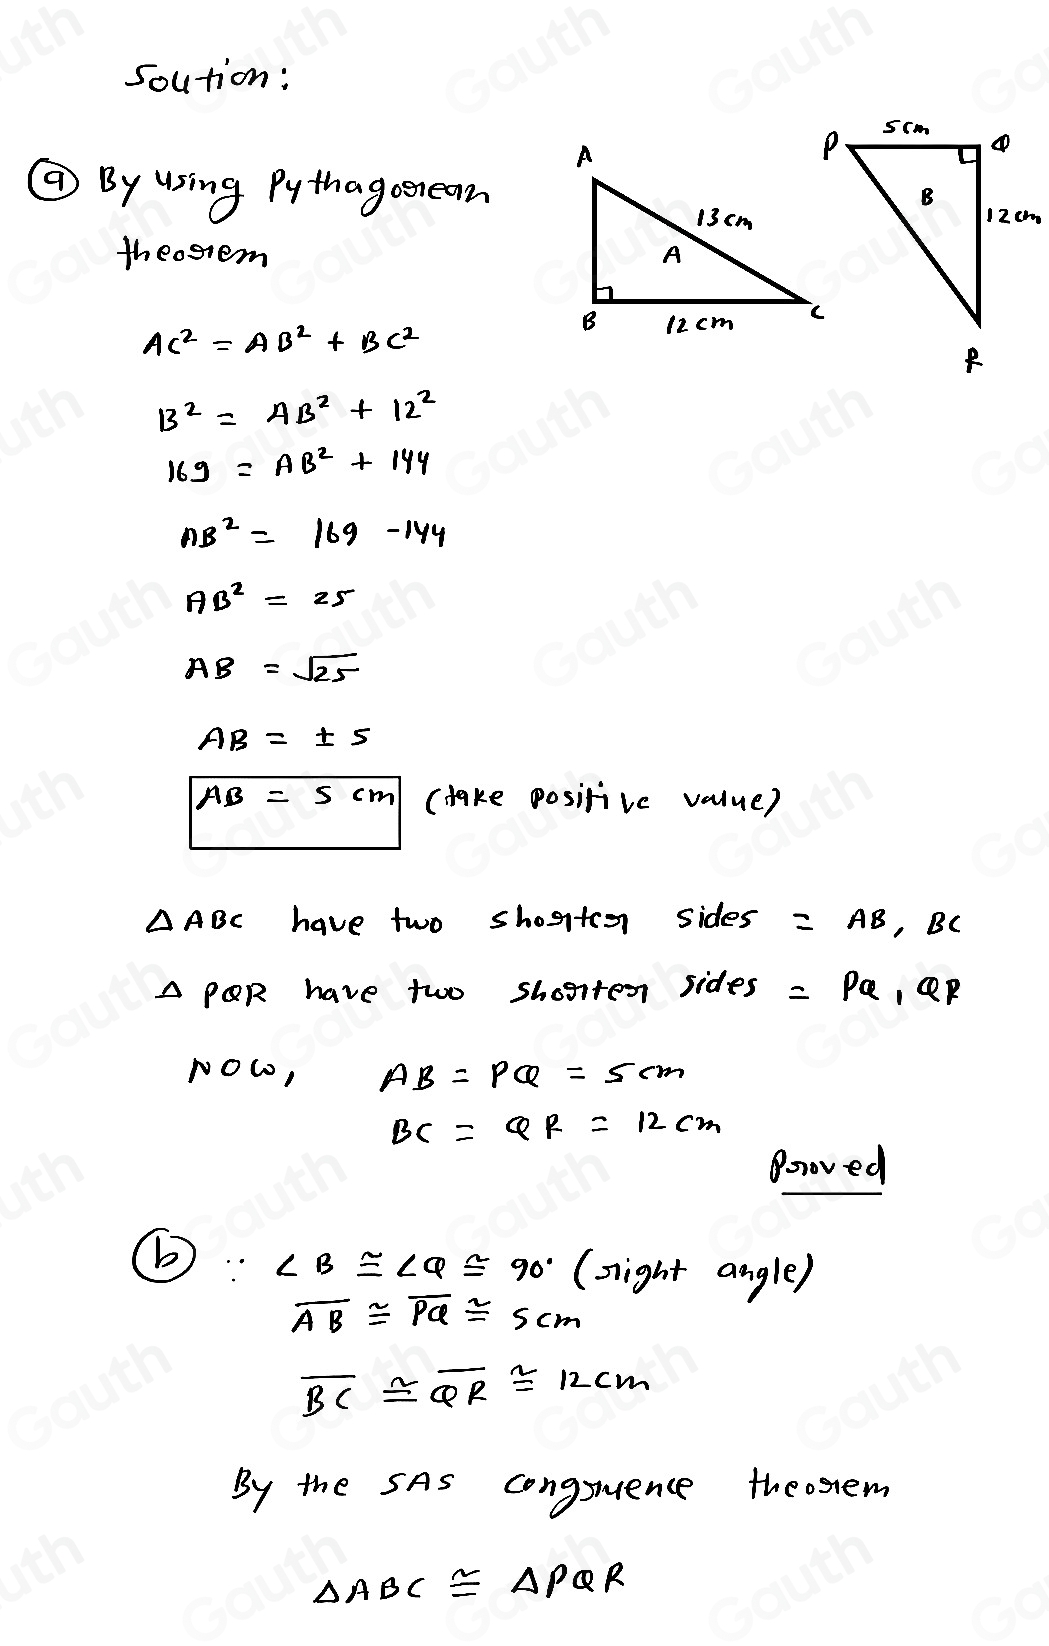 Soution:
(a) By using Pythagorean
theorem
A
13 cm
A
B
12 cm
C
P
5 cm
Q
B
12 cm
R
AC² = AB² + BC²
13² = AB² + 12²
169 = AB² + 144
AB² = 169 - 144
AB² = 25
AB = √25
AB = ± 5
AB = 5 cm (take positive value)
△ ABC have two shorter sides = AB, BC
△ PQR have two shorter sides = PQ, QR
Now, AB = PQ = 5 cm
BC = QR = 12 cm
Proved
(b) ∵ ∠B ≅ ∠Q ≅ 90° (right angle)
A̅B̅ ≅ P̅Q̅ ≅ 5 cm
B̅C̅ ≅ Q̅R̅ ≅ 12 cm
By the SAS congruence theorem
△ABC ≅ △PQR
Gauth